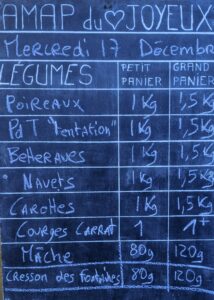 AMAP du ♡ JOYEUX
Mercredi 17 Décembre
LÉGUMES PETIT PANIER GRAND PANIER
POIREAUX 1 Kg 1,5 Kg
PdT "Tentation" 1 Kg 1,5 Kg
Betteraves 1 Kg 1,5 Kg
Navets 1 Kg 1,5 Kg
CAROTTES 1 Kg 1,5 Kg
COURGES CARRAT 1 1+
Mâche 80g 120g
Cresson des fontaines 80g 120g